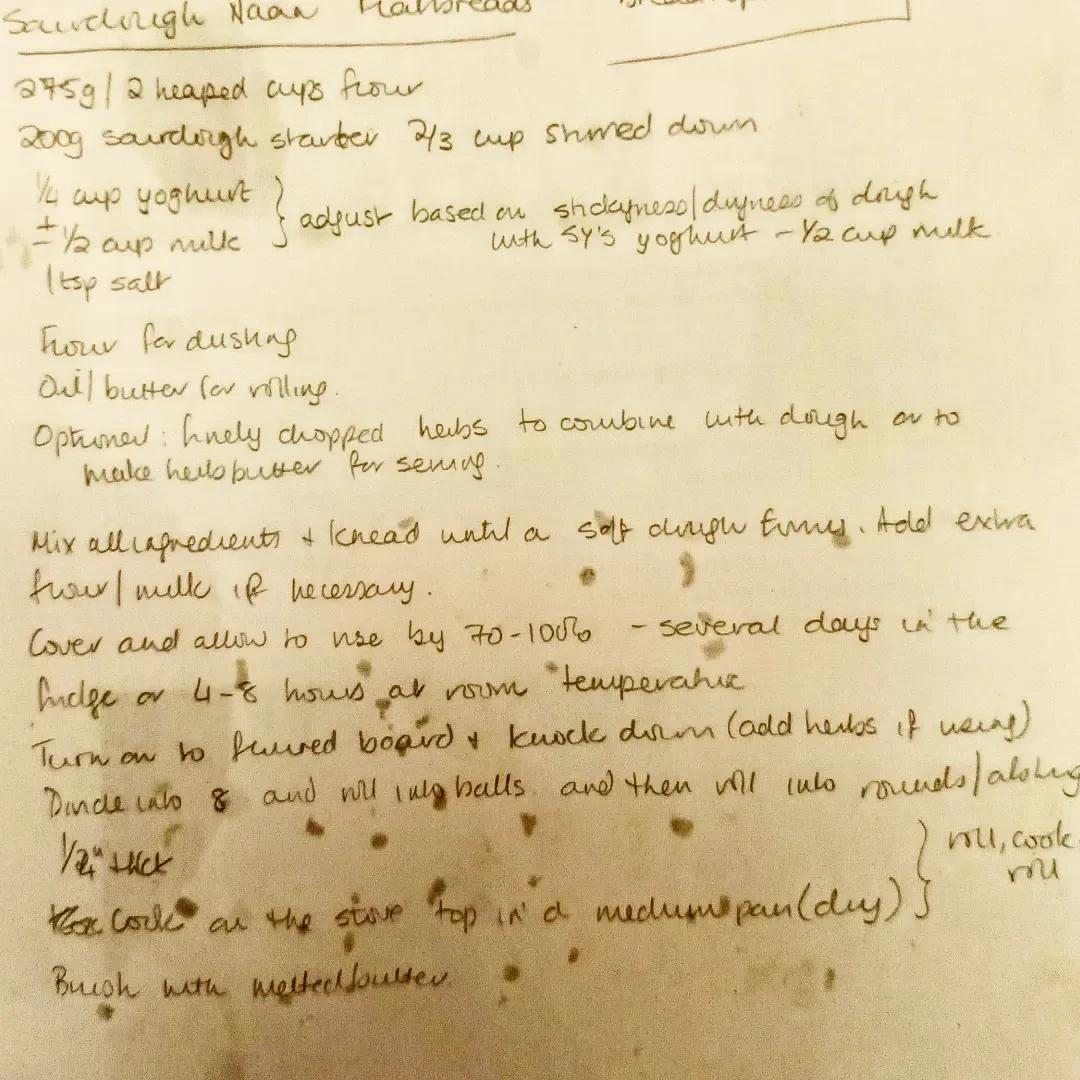 Sourdough Naan Flatbreads
275g / 2 heaped cups flour
200g sourdough starter 2/3 cup stirred down
1/4 cup yoghurt
± 1/2 cup milk
} adjust based on stickyness/dryness of dough
with SY's yoghurt - 1/2 cup milk
1 tsp salt
Flour for dusting
Oil/butter for rolling.
Optional: finely chopped herbs to combine with dough or to
make herb butter for serving.
Mix all ingredients + knead until a soft dough forms. Add extra
flour/milk if necessary.
Cover and allow to rise by 70-100% - several days in the
fridge or 4-8 hours at room temperature
Turn on to floured board + knock down (add herbs if using)
Divide into 8 and roll into balls. and then roll into rounds/oblong
thick
Cook on the stove top in a medium pan (dry)
} roll, cook
roll
Brush with melted butter.